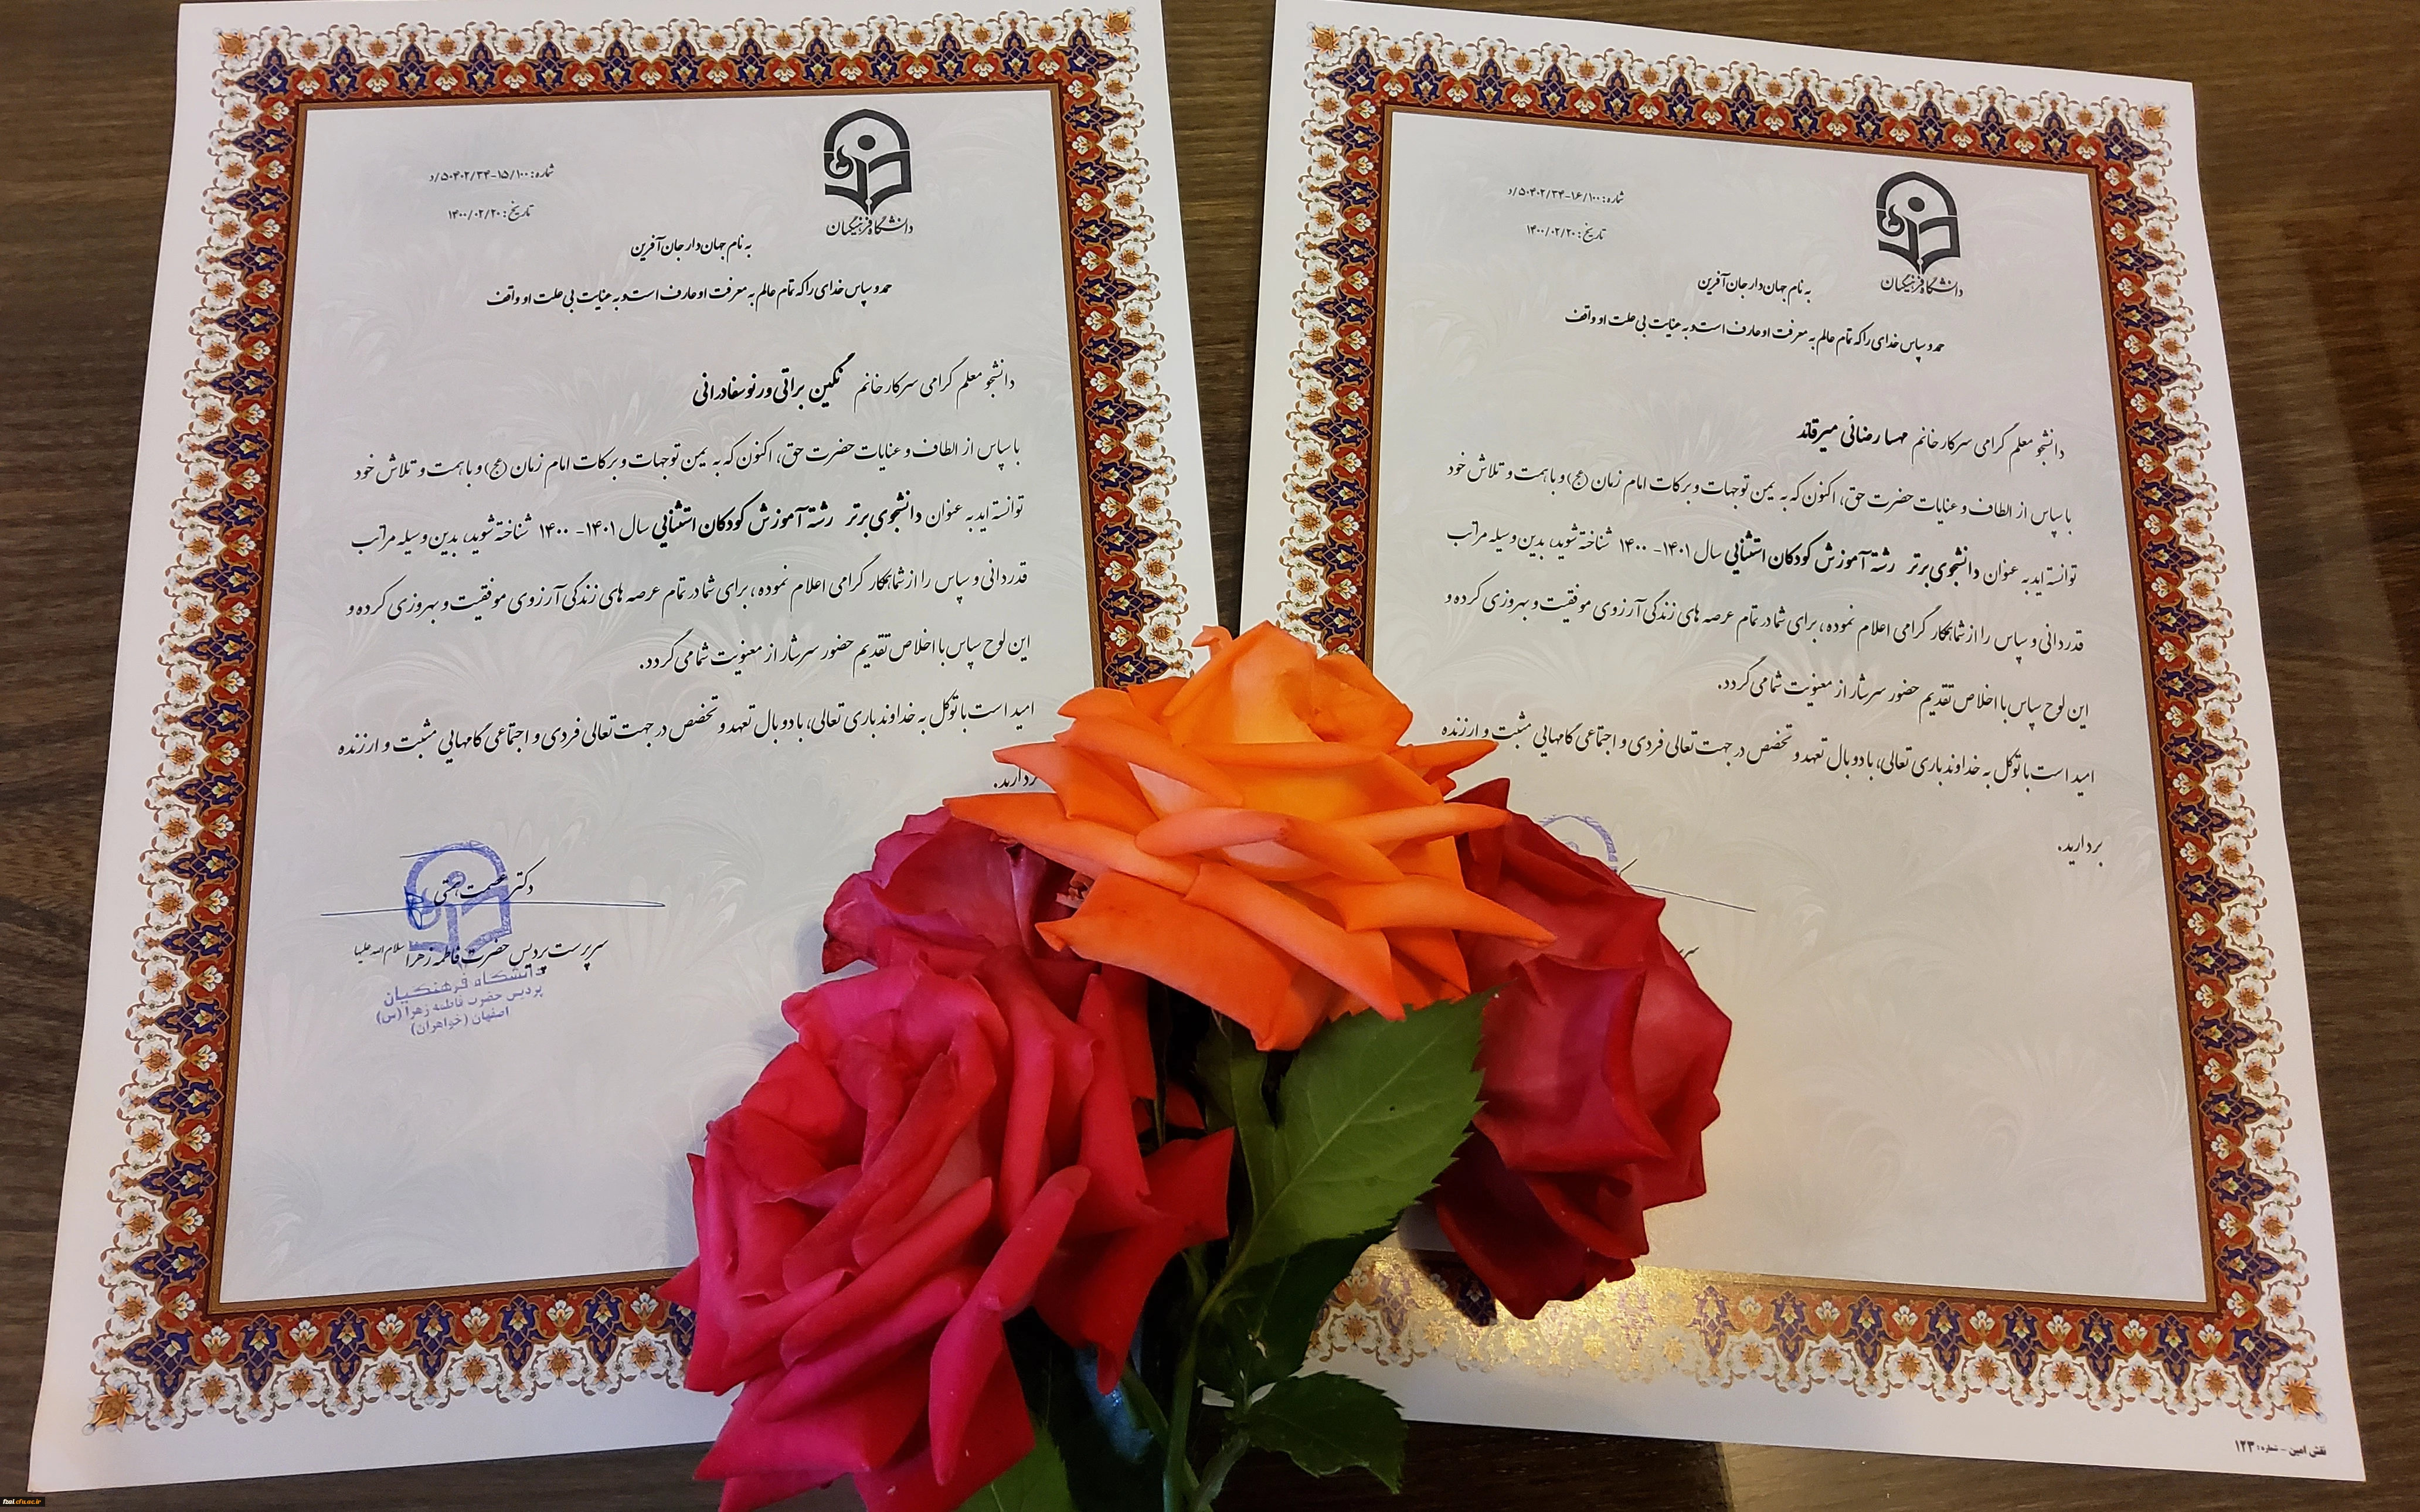 دانشگاه فرهنگیان
شماره: ۵۰۴۰۲/۳۴-۱۵/۱۰۰/د
تاریخ: ۱۴۰۰/۰۲/۲۰
به نام جهان‌دار جان‌آفرین
حمد و سپاس خدای را که تمام عالم به معرفت او عارف است و به عنایت بی علت او واقف
دانشجو معلم گرامی سرکار خانم نگین براتی ورنوسفادرانی
با سپاس از الطاف و عنایات حضرت حق، اکنون که به یمن توجهات و برکات امام زمان (عج) و با همت و تلاش خود
توانسته اید به عنوان دانشجوی برتر رشته آموزش کودکان استثنایی سال ۱۴۰۱- ۱۴۰۰ شناخته شوید، بدین وسیله مراتب
قدردانی و سپاس را از شما همکار گرامی اعلام نموده، برای شما در تمام عرصه های زندگی آرزوی موفقیت و بهروزی کرده و
این لوح سپاس با اخلاص تقدیم حضور سرشار از معنویت شما می گردد.
امید است با توکل به خداوند باری تعالی، با دو بال تعهد و تخصص در جهت تعالی فردی و اجتماعی گامهایی مثبت و ارزنده
بردارید.
دکتر عصمت همتی
سرپرست پردیس حضرت فاطمه زهرا سلام الله علیها
دانشگاه فرهنگیان
پردیس حضرت فاطمه زهرا (س)
اصفهان (خواهران)
دانشگاه فرهنگیان
شماره: ۵۰۴۰۲/۳۴-۱۶/۱۰۰/د
تاریخ: ۱۴۰۰/۰۲/۲۰
به نام جهان‌دار جان‌آفرین
حمد و سپاس خدای را که تمام عالم به معرفت او عارف است و به عنایت بی علت او واقف
دانشجو معلم گرامی سرکار خانم مهسا رضائی میرقائد
با سپاس از الطاف و عنایات حضرت حق، اکنون که به یمن توجهات و برکات امام زمان (عج) و با همت و تلاش خود
توانسته اید به عنوان دانشجوی برتر رشته آموزش کودکان استثنایی سال ۱۴۰۱- ۱۴۰۰ شناخته شوید، بدین وسیله مراتب
قدردانی و سپاس را از شما همکار گرامی اعلام نموده، برای شما در تمام عرصه های زندگی آرزوی موفقیت و بهروزی کرده و
این لوح سپاس با اخلاص تقدیم حضور سرشار از معنویت شما می گردد.
امید است با توکل به خداوند باری تعالی، با دو بال تعهد و تخصص در جهت تعالی فردی و اجتماعی گامهایی مثبت و ارزنده
بردارید.
نقش امین - شماره: ۱۲۳
fzai.cfu.ac.ir